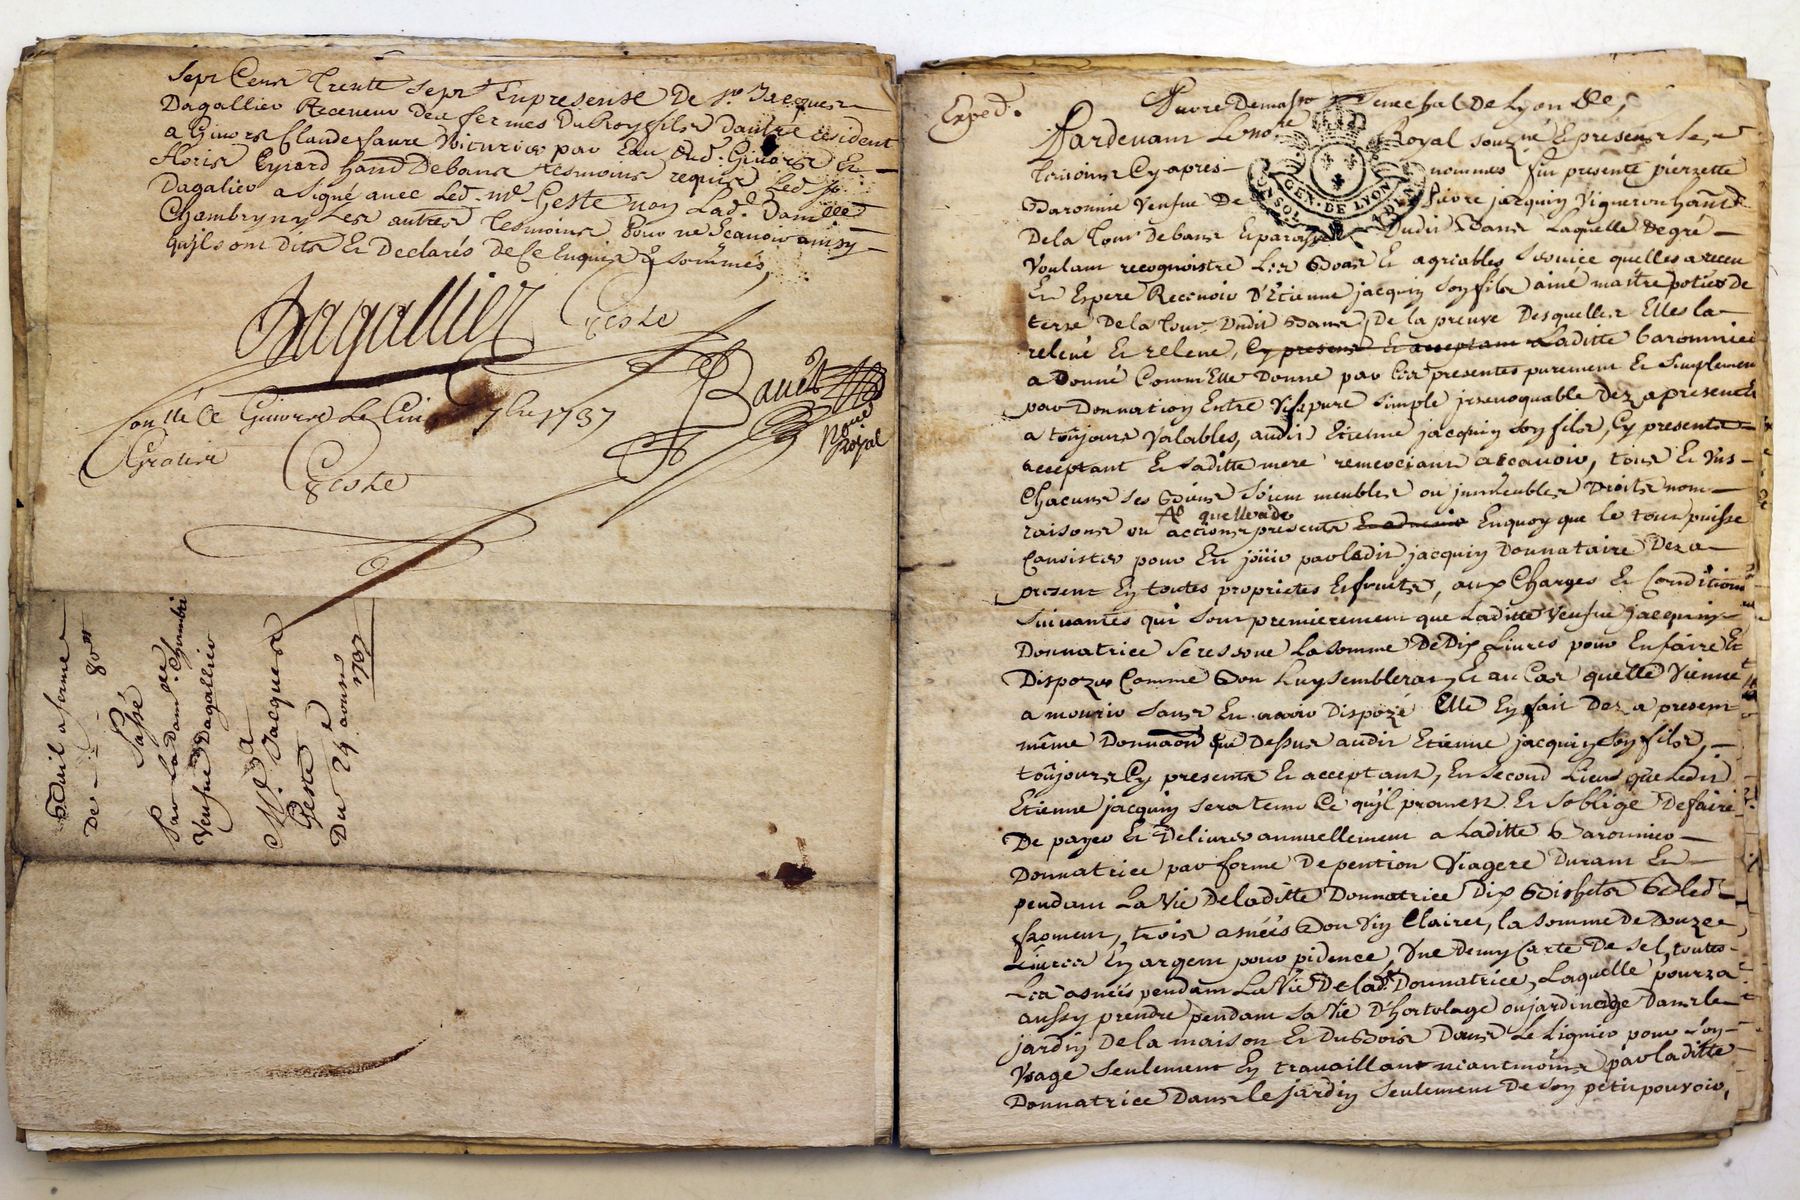 Sept Cens trente sept En presense De Sr. Jacques
Dagallier Receveur des fermes Du Roy fils d'autre résident
a Givors Claude faure Voiturier par Eau Aud. Givors Et
floris Eynard habt De bans tesmoins requis Led. Sr.
Dagalier a signé avec Led. Mr Geste non Lad. Damlle
Chambryny Les autres tesmoins Pour ne Scavoir ainsy
qu'ils ont dits Et Declarés de Ce Enquis Et sommés,
Dagallier Geste
Banet
Nore
Royal
Conllé a Givors Le Cin 7bre 1737
Gratis
Geste
Bail a ferme
De 80ll
Passé
Par La dame De Chambri
Veufve Dagallier
A
Mre Jacques
Geste
Du 29e
1737
Exped.
Senechal de Lyon &c,
Pardevant Le nore Royal souzné Et present Les
temoins Cy apres nommes fut presente pierrette
Baronnier Veufve De Pierre jacquin Vigneron habt
De la Tour De bans Et paroisse Dudit Bans Laquelle De gré
SOL GEN. DE LYON
Voulant recognoistre Les Bons Et agriables Service quelles a receu
Et Espere Recevoir D'Etienne jacquin Son fils ainé maitre potier De
terre De la Tour Dudit Bans, De la preuve Desquelles Elles la
relevé Et releve, Cy present Et acceptant Laditte baronnier
a Donné Comm'Elle Donne par Ces presentes purement Et Simplement
par Donnation Entre Vifs pure Simple jrrevoquable Dez a present Et
a toûjours Valables, audit Etienne jacquin Son fils, Cy present
acceptant Et Saditte mere remerciant ascavoir, tous Et Uns
Chacuns Ses Biens Soient meubles ou jmmeubles Droits nom
Al quelle a de
raisons ou actions presents Enquoy que le tout puisse
Consister pour En joüir par ledit jacquin Donnataire Dez a
present En toutes proprietes Et fruits, aux Charges Et Conditions
Suivantes qui Sont premierement que Laditte Veufve jacquin
Donnatrice Se reserve La somme De Dix Livres pour En faire Et
Disposer Comme Bon Luy Semblera, Et au Cas quelle Vienne
a mourir Sans En avoir Dispozé Elle En fait Dez a present
même Donnaon que Dessus audit Etienne jacquin Son fils,
toûjours Cy present Et acceptant, En Second Lieu que Ledit
Etienne jacquin Sera tenu Ce qu'jl promest Et S'oblige De faire
De payer Et Delivrer annuellement a Laditte Baronnier
Donnatrice par forme De pention Viagere Durant Et
pendant La Vie De laditte Donnatrice Dix Bichets Bled
froment, trois asnéés Bon Vin Clairet, la Somme De Douze
Livres En argent pour pidence, Une Demy Carte De Sel, toutes
Les asnéés pendant La Vie De lad. Donnatrice, Laquelle pourra
aussy prendre pendant Sa Vie D'hortolage ou jardinage Dans le
jardin De la maison Et Du Bois Dans Le Lignier pour Son
Usage Seulement En travaillant neantmoins par laditte
Donnatrice Dans le jardin Seulement De Son petit pouvoir,